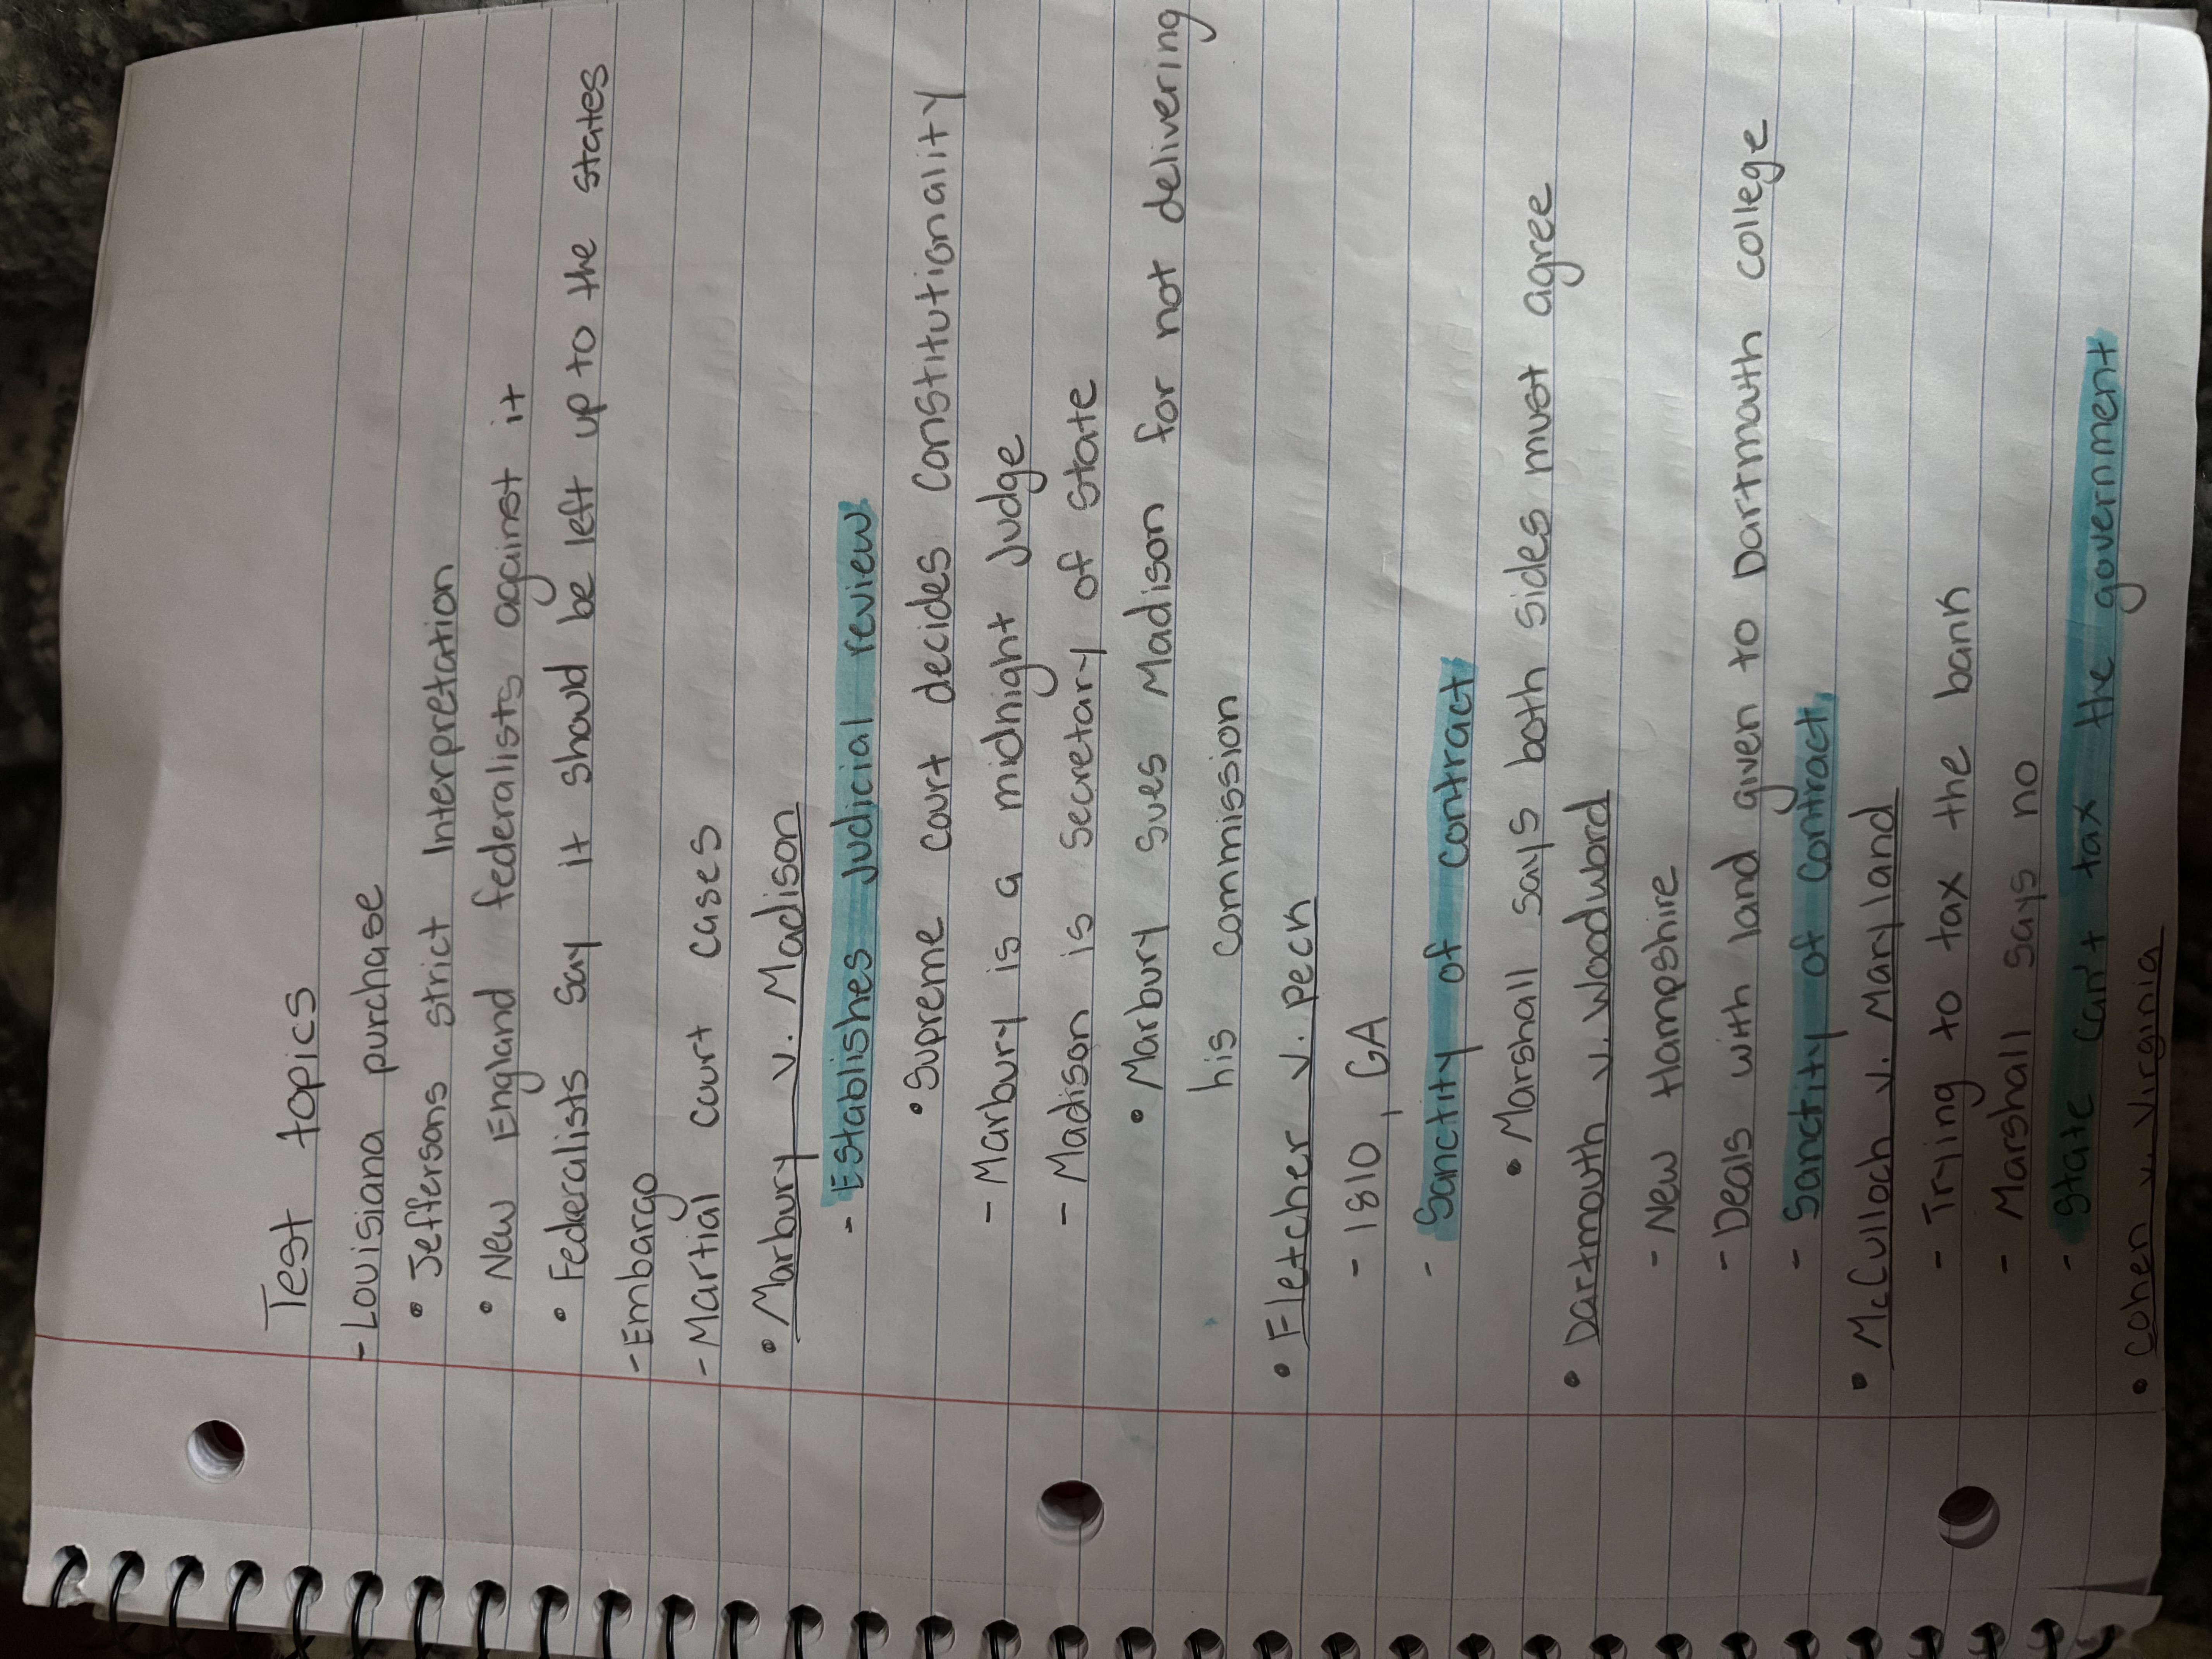 Test topics
- Louisiana purchase
• Jeffersons strict Interpretation
• New England federalists against it
• Federalists say it should be left up to the states
- Embargo
- Martial court cases
• Marbury v. Madison
- Establishes Judicial review
• Supreme court decides constitutionality
- Marbury is a midnight Judge
- Madison is secretary of state
• Marbury sues Madison for not delivering
his commission
• Fletcher v. Peck
- 1810, GA
- Sanctity of contract
• Marshall says both sides must agree
• Dartmouth v. Woodword
- New Hampshire
- Deals with land given to Dartmouth college
- Sanctity of contract
• McCulloch v. Maryland
- Trying to tax the bank
- Marshall says no
- State can't tax the government
• Cohen v. Virginia